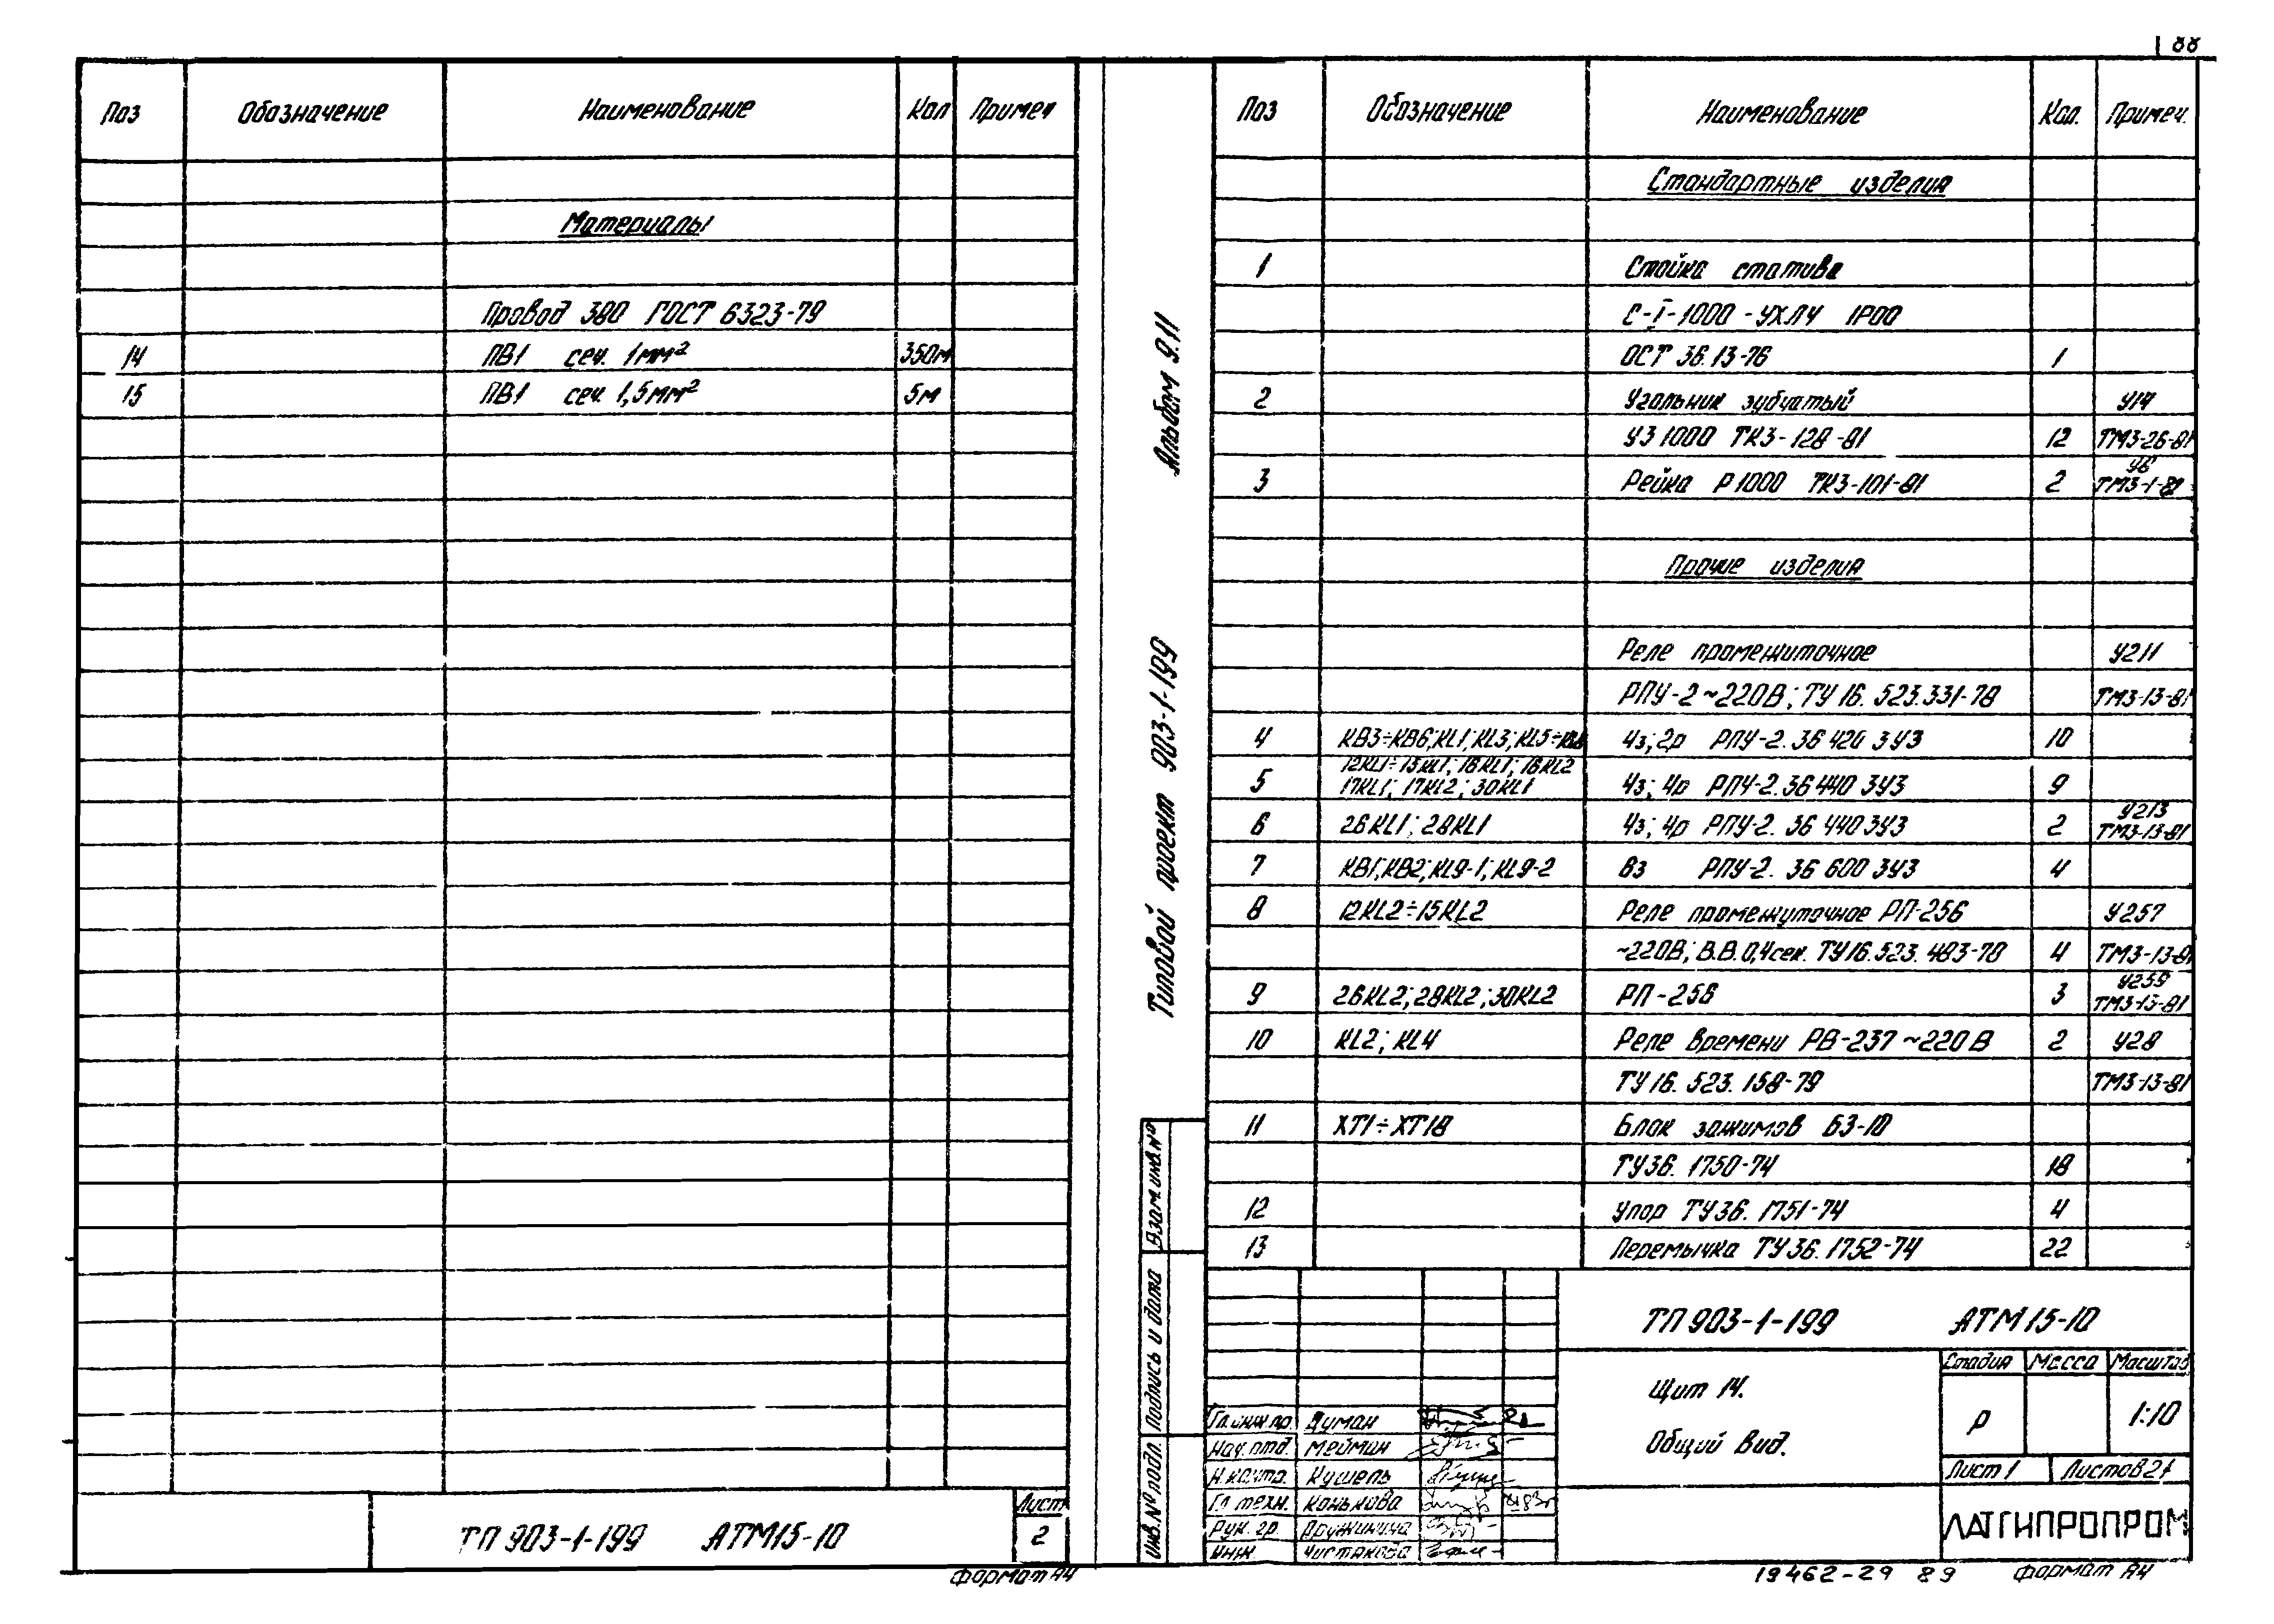 88
Поз Обозначение Наименование Кол Примеч
Материалы
Провод 380 ГОСТ 6323-79
14 ПВ1 сеч. 1мм² 350м
15 ПВ1 сеч. 1,5мм² 5м
ТП 903-1-199 АТМ15-10
Лист
2
Формат А4
Альбом 9.11
Типовой проект 903-1-199
Взам.инв.№
Подпись и дата
Инв.№ подл.
Поз Обозначение Наименование Кол. Примеч.
Стандартные изделия
1 Стойка статива
С-I-1000-УХЛ4 IP00
ОСТ 36.13-76 1
2 Угольник зубчатый У14
УЗ 1000 ТК3-128-81 12 ТМ3-26-81
3 Рейка Р1000 ТК3-101-81 2 У6 ТМ3-1-81
Прочие изделия
Реле промежуточное У211
РПУ-2 ~220В; ТУ 16.523.331-78 ТМ3-13-81
4 КВ3÷КВ6; KL1; KL3; KL5÷KL8 4з; 2р РПУ-2.36 420 3У3 10
12KL1÷15KL1; 16KL1; 16KL2
5 17KL1; 17KL2; 30KL1 4з; 4р РПУ-2.36 440 3У3 9
6 26KL1; 28KL1 4з; 4р РПУ-2. 36 440 3У3 2 У213 ТМ3-13-81
7 КВ1; КВ2; KL9-1; KL9-2 6з РПУ-2. 36 600 3У3 4
8 12KL2÷15KL2 Реле промежуточное РП-256 У257
~220В; В.В. 0,4сек. ТУ16.523.483-78 4 ТМ3-13-81
9 26KL2; 28KL2; 30KL2 РП-256 3 У259 ТМ3-13-81
10 KL2; KL4 Реле времени РВ-237 ~220В 2 У28
ТУ 16. 523. 158-79 ТМ3-13-81
11 ХТ1÷ХТ18 Блок зажимов БЗ-10
ТУ36. 1750-74 18
12 Упор ТУ36. 1751-74 4
13 Перемычка ТУ36.1752-74 22
ТП 903-1-199 АТМ15-10
Щит 14.
Общий вид.
Стадия Масса Масштаб
Р 1:10
Лист 1 Листов 2
ЛАТГИПРОПРОМ
Гл.инж.пр. Думан
Нач.отд. Мейман
Н.контр. Кушель
Гл.техн. Конькова XI 83г
Рук. гр. Дружинина
Инж. Чистякова
19462-29 89 Формат А4